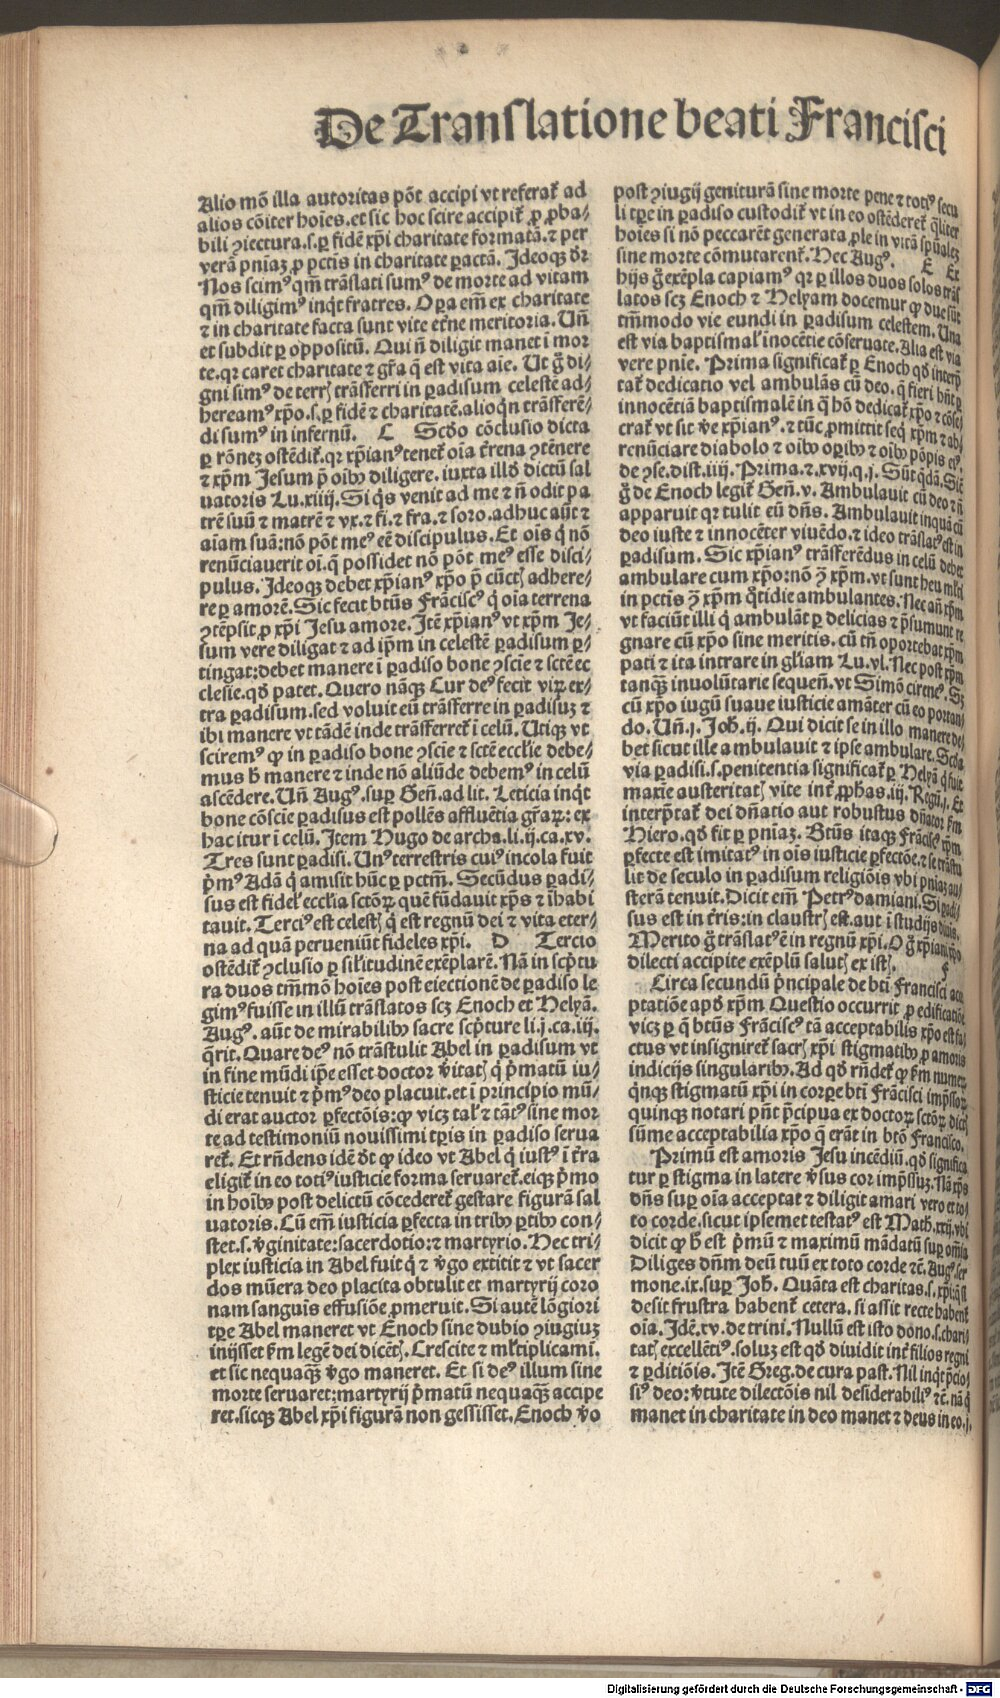 De Translatione beati Francisci
Alio mõ illa autoritas põt accipi vt referat̃ ad
alios cõiter hoĩes. et sic hoc scire accipit̃ ꝓ ꝓba⸗
bili ꝯiectura. s. ꝑ fidẽ xp̃i charitate formatã. ⁊ per
verã pñiaʒ ꝓ pctĩs in charitate ꝑactã. Ideoqʒ dr̃
Nos scimꝰ qm̃ trãslati sumꝰ de morte ad vitam
qm̃ diligimꝰ inq̃t fratres. Oꝑa em̃ ex charitate
⁊ in charitate facta sunt vite etr̃ne meritoria. Uñ
et subdit ꝑ oppositũ. Qui ñ diligit manet ĩ mor
te. qr caret charitate ⁊ gr̃a q̃ est vita aĩe. Ut g̃ di⸗
gni simꝰ de terrꝭ trãsferri in ꝑadisum celestẽ ad⸗
hereamꝰ xp̃o. s. ꝑ fidẽ ⁊ charitatẽ. alioq̃n trãsferẽ⸗
di sumꝰ in infernũ. C Scd̃o cõclusio dicta
ꝑ rõneʒ ostẽdit̃. qr xp̃ianꝰ tenet̃ oĩa tr̃rena ꝯtẽnere
⁊ xp̃m Jesum p̃ oĩbꝰ diligere. iuxta illd̃ dictũ sal
uatoris Lu. xiiij. Si q̃s venit ad me ⁊ ñ odit pa
trẽ suũ ⁊ matrẽ ⁊ vx. ⁊ fi. ⁊ fra. ⁊ soro. adhuc aũt ⁊
aĩam suã: nõ põt meꝰ eẽ discipulus. Et oĩs q̃ nõ
renũciauerit oĩ. q̃ possidet nõ põt meꝰ esse disci⸗
pulus. Ideoqʒ debet xp̃ianꝰ xp̃o p̃ cũctꝭ adhere⸗
re ꝑ amorẽ. Sic fecit btũs Frãciscꝰ q̃ oĩa terrena
ꝯtẽpsit ꝓ xp̃i Jesu amore. Itẽ xp̃ianꝰ vt xp̃m Je⸗
sum vere diligat ⁊ ad ip̃m in celestẽ ꝑadisum ꝑ⸗
tingat: debet manere ĩ ꝑadiso bone ꝯscĩe ⁊ sctẽ ec
clesie. qd̃ patet. Quero nãqʒ Cur deꝰ fecit viꝝ ex⸗
tra ꝑadisum. sed voluit eũ trãsferre in ꝑadisuʒ ⁊
ibi manere vt tãdẽ inde trãsferret̃ ĩ celũ. Utiqʒ vt
sciremꝰ ꝙ in ꝑadiso bone ꝯscĩe ⁊ sctẽ ecclĩe debe⸗
mus h̃ manere ⁊ inde nõ aliũde debemꝰ in celũ
ascẽdere. Uñ Augꝰ. suꝑ Geñ. ad lit. Leticia inq̃t
bone cõscĩe ꝑadisus est pollẽs affluẽtia gr̃aꝝ: ex
hac itur ĩ celũ. Item Hugo de archa. li. ij. ca. xv.
Tres sunt ꝑadisi. Unꝰ terrestris cuiꝰ incola fuit
p̃mꝰ Adã q̃ amisit hũc ꝑ pctm̃. Secũdus ꝑadi⸗
sus est fideliꝰ ecclĩa sctõꝝ quẽ fũdauit xp̃s ⁊ ĩhabi
tauit. Terciꝰ est celestꝭ q̃ est regnũ dei ⁊ vita eter⸗
na ad quã perueniũt fideles xp̃i. D Tercio
ostẽdit̃ ꝯclusio ꝑ sil̃itudinẽ exẽplarẽ. Nã in scp̃tu
ra duos tm̃mõ hoĩes post eiectionẽ de ꝑadiso le
gimꝰ fuisse in illũ trãslatos scʒ Enoch et Helyã.
Augꝰ. aũt de mirabilibꝰ sacre scp̃ture li. j. ca. iij.
q̃rit. Quare deꝰ nõ trãstulit Abel in ꝑadisum vt
in fine mũdi ip̃e esset doctor ṽitatꝭ q̃ p̃matũ iu⸗
sticie tenuit ⁊ p̃mꝰ deo placuit. et ĩ principio mũ⸗
di erat auctor ꝑfectõis: ꝙ vicʒ tal̃ ⁊ tãtꝰ sine mor
te ad testimoniũ nouissimi tꝑis in ꝑadiso serua
ret̃. Et rñdens idẽ dt̃ ꝙ ideo vt Abel q̃ iustꝰ ĩ tr̃a
eligit̃ in eo totiꝰ iusticie forma seruaret̃. eiqʒ p̃mo
in hoĩbꝰ post delictũ cõcederet̃ gestare figurã sal
uatoris. Cũ em̃ iusticia ꝑfecta in tribꝰ ꝑtibꝰ con⸗
stet. s. ṽginitate: sacerdotio: ⁊ martyrio. Hec tri⸗
plex iusticia in Abel fuit q̃ ⁊ ṽgo extitit ⁊ vt sacer
dos mũera deo placita obtulit et martyrij coro
nam sanguis effusiõe ꝓmeruit. Si autẽ lõgiori
tꝑe Abel maneret vt Enoch sine dubio ꝯiugiuʒ
inijsset ẜm legẽ dei dicẽtꝭ. Crescite ⁊ ml̃tiplicamĩ.
et sic nequaqʒ ṽgo maneret. Et si deꝰ illum sine
morte seruaret: martyrij p̃matũ nequaqʒ accipe
ret. sicqʒ Abel xp̃i figurã non gessisset. Enoch ṽo
post ꝯiugij geniturã sine morte pene ⁊ totiꝰ secu
li tꝑe in ꝑadiso custodit̃ vt in eo ostẽderet̃ q̃liter
hoĩes si nõ peccarẽt generata ꝓle in vitã sp̃ualeʒ
sine morte cõmutarent̃. Hec Augꝰ. E Ex
hijs g̃ exẽpla capiamꝰ qr ꝑ illos duos solos trãs
latos scʒ Enoch ⁊ Helyam docemur ꝙ due sũt
tm̃modo vie eundi in ꝑadisum celestem. Una
est via baptismal̃ inocẽtie cõseruate. Alia est via
vere pñie. Prima significat̃ ꝑ Enoch qd̃ interp̃
tat̃ dedicatio vel ambulãs cũ deo. q̃ fieri hñt ꝑ
innocẽtiã baptismalẽ in q̃ hõ dedicat̃ xp̃o ⁊ cõse⸗
crat̃ vt sit ṽe xp̃ianꝰ. ⁊ tũc ꝓmittit seq̃ xp̃m ⁊ ab⸗
renũciare diabolo ⁊ oĩbꝰ oꝑibꝰ ⁊ oĩbꝰ põpis eiꝰ.
de ꝯse. dist. iiij. Prima. ⁊. xvij. q. j. Sũt q̃dã. Sic̃
g̃ de Enoch legit̃ Geñ. v. Ambulauit cũ deo ⁊ ñ
apparuit qr tulit eũ dñs. Ambulauit inquã cũ
deo iuste ⁊ innocẽter viuẽdo. ⁊ ideo trãslatꝰ est in
ꝑadisum. Sic xp̃ianꝰ trãsferẽdus in celũ debet
ambulare cum xp̃o: nõ ꝯ̃ xp̃m. vt sunt heu ml̃ti
in pctĩs ꝯ̃ xp̃m q̃tidie ambulantes. Nec añ xp̃m
vt faciũt illi q̃ ambulãt ꝑ delicias ⁊ p̃sumunt re
gnare cũ xp̃o sine meritis. cũ tñ oportebat xp̃m
pati ⁊ ita intrare in gl̃iam Lu. vl. Nec post xp̃m
tanqʒ inuolũtarie sequeñ. vt Simõ cireneꝰ. Sʒ
cũ xp̃o iugũ suaue iusticie amãter cũ eo portan⸗
do. Uñ. j. Joh̃. ij. Qui dicit se in illo manere de⸗
bet sicut ille ambulauit ⁊ ipse ambulare. Scd̃a
via ꝑadisi. s. penitentia significat̃ ꝑ Helyã q̃ fuit
maxĩe austeritatꝭ vite int̃ ꝓphas. iij. Regũ. j. Et
interp̃tat̃ dei dñatio aut robustus dñator ẜm
Hiero. qd̃ fit ꝑ pñiaʒ. Btũs itaqʒ Frãciscꝰ xp̃m
ꝑfecte est imitatꝰ in oĩs iusticie ꝑfectõe. ⁊ se trãstu
lit de seculo in ꝑadisum religiõis vbi pñiaʒ au⸗
sterã tenuit. Dicit em̃ Petrꝰ damiani. Si ꝑadi⸗
sus est in tr̃is: in claustrꝭ est. aut ĩ studijs diuis.
Merito g̃ trãslatꝰ ẽ in regnũ xp̃i. O g̃ xp̃iani xp̃o
dilecti accipite exẽplũ salutꝭ ex istꝭ. F
Circa secundũ p̃ncipale de btĩ Francisci acce
ptatiõe apd̃ xp̃m Questio occurrit ꝓ edificatiõe
vicʒ ꝑ q̃ btũs Frãciscꝰ tã acceptabilis xp̃o est fa⸗
ctus vt insigniret̃ sacrꝭ xp̃i stigmatibꝰ ꝓ amoris
indicijs singularibꝰ. Ad qd̃ rñdet̃ ꝙ ẜm numeꝝ
q̃nqʒ stigmatũ xp̃i in corꝑe btĩ Frãcisci imp̃ssoꝝ
quinqʒ notari pñt p̃cipua ex doctoꝝ sctõꝝ dictꝭ
sũme acceptabilia xp̃o q̃ erãt in btõ Francisco.
Primũ est amoris Jesu incẽdiũ. qd̃ significa
tur ꝑ stigma in latere ṽsus cor imp̃ssuʒ. Nã xp̃s
dñs suꝑ oĩa acceptat ⁊ diligit amari vero et to⸗
to corde. sicut ipsemet testatꝰ est Math. xxij. vbi
dicit ꝙ h̃ est p̃mũ ⁊ maximũ mãdatũ suꝑ om̃ia
Diliges dñm deũ tuũ ex toto corde ⁊c̃. Augꝰ ser
mone. ix. suꝑ Joh̃. Quãta est charitas. s. xp̃i: q̃ si
desit frustra habent̃ cetera. si assit recte habent̃
oĩa. Idẽ. xv. de trini. Nullũ est isto dono. s. chari⸗
tatꝭ excellẽtiꝰ. soluʒ est qd̃ diuidit int̃ filios regni
⁊ ꝑditiõis. Itẽ Greg. de cura past. Nil inq̃t p̃cio⸗
siꝰ deo: ṽtute dilectõis nil desiderabiliꝰ ⁊c̃. nã q̃
manet in charitate in deo manet ⁊ deus in eo. j.
Digitalisierung gefördert durch die Deutsche Forschungsgemeinschaft - DFG